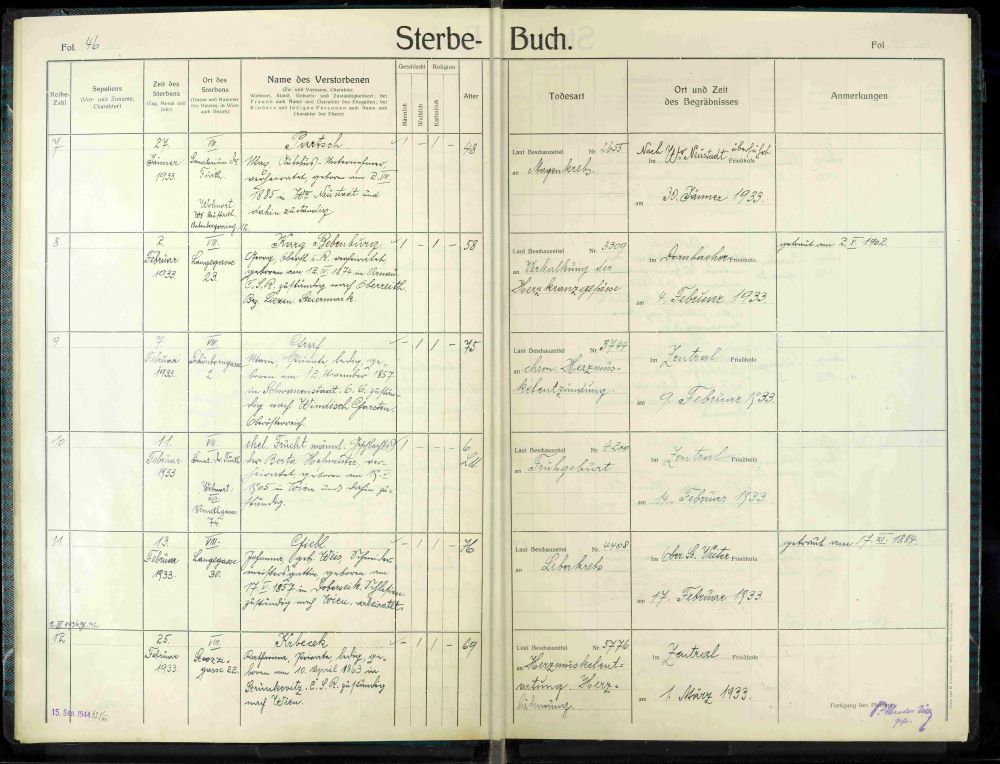 Fol. 46
Sterbe-Buch.
Fol
Reihe-Zahl
Sepeliens
(Vor- und Zuname, Charakter)
Zeit des Sterbens
(Tag, Monat und Jahr)
Ort des Sterbens
(Gasse und Nummer des Hauses, in Wien auch Bezirk)
Name des Verstorbenen
(Zu- und Vorname, Charakter,
Wohnort, Stand, Geburts- und Zuständigkeitsort; bei
Frauen auch Name und Charakter des Ehegatten; bei
Kindern und ledigen Personen auch Name und
Charakter der Eltern)
Geschlecht
Religion
Männlich
Weiblich
Katholisch
Alter
Todesart
Ort und Zeit
des Begräbnisses
Anmerkungen
7
27.
Jänner
1933.
Sanatorium Dr.
Fürth.
Wohnort
Wr. Neustadt
verheiratet geboren am 2. VIII
1885 in Wr. Neustadt und
dahin zuständig
/ 1 - 1 - 48
Laut Beschauzettel Nr. 2655
an Magenkrebs.
Nach Wr. Neustadt überführt
im Friedhofe
am 30. Jänner 1933.
8
2.
Februar
1933.
VIII.
Langegasse
23.
Karg Bebenburg
Georg, Oberst i. R. verheiratet
geboren am 12. IV. 1874 in Arnau
C.S.R. zuständig nach Oberreith
Bez. Liezen. Steiermark.
1 - 1 - 58
Laut Beschauzettel Nr. 3309
an Verkalkung der
Herzkranzgefässe
im Dornbacher Friedhofe
am 4. Februar 1933.
getraut am 2. V. 1902.
9
7.
Februar
1933.
VIII.
Schönborngasse
2
Graf
Marie Private ledig, ge-
boren am 12. November 1857
in Schwanenstadt. O. Ö. zustän-
dig nach Windisch Garsten.
Oberösterreich.
- 1 1 - 75
Laut Beschauzettel Nr. 3744
an chron. Herzmus-
kelentzündung.
im Zentral Friedhofe
am 9. Februar 1933.
10
11.
Februar
1933
VIII.
Wohnort:
74.
ehel. Frucht männl. Geschlechts
der Berta Hofmeister ver-
heiratet geboren am
1905 in Wien und dahin zu-
ständig.
1 - - - 6
Laut Beschauzettel Nr. 4200
an Frühgeburt
im Zentral Friedhofe
am 14. Februar 1933.
11
13.
Februar
1933.
VIII.
Langegasse
30.
Johanna geb. Weis Schneider-
meistersgattin geboren am
17. V. 1857 in Schlesien
zuständig nach Wien.
- 1 1 - 76
Laut Beschauzettel Nr. 4408
an Leberkrebs
im Ober St. Veiter Friedhofe
am 17. Februar 1933.
getraut am 17. XI. 1884.
12
25.
Februar
1933.
VIII.
gasse 22.
Krbecek
Katharina, Private ledig, ge-
boren am 10. April 1863 in
Strunkovitz. C.S.R. zuständig
nach Wien.
- 1 1 - 69
Laut Beschauzettel Nr. 5776
an Herzmuskelent-
artung. Herz-
lähmung.
im Zentral Friedhofe
am 1. März 1933.
15. Sep. 1944
Fertigung des Pfarrers